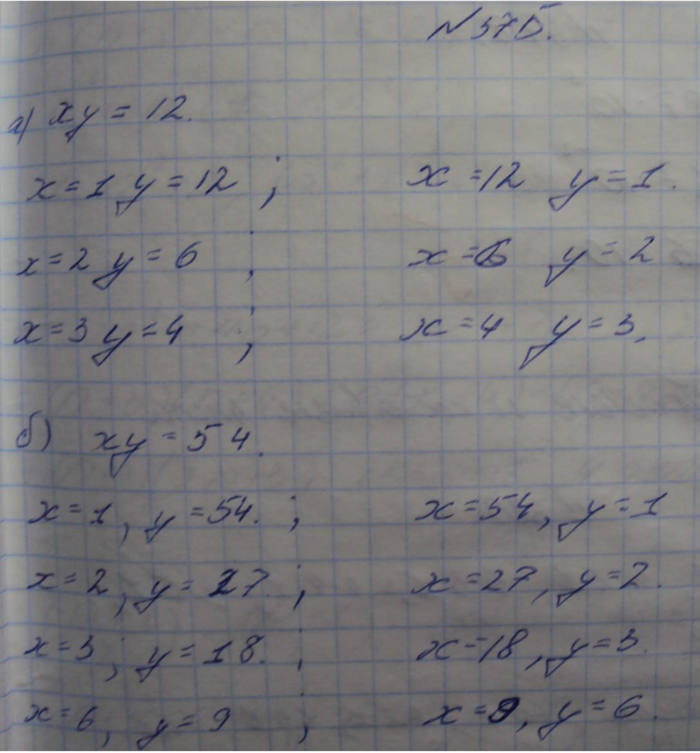 № 375.
а) xy = 12.
x = 1 y = 12 ; x = 12 y = 1.
x = 2 y = 6 ; x = 6 y = 2
x = 3 y = 4 ; x = 4 y = 3.
б) xy = 54.
x = 1, y = 54. ; x = 54, y = 1
x = 2, y = 27. ; x = 27, y = 2.
x = 3, y = 18. ; x = 18, y = 3.
x = 6, y = 9 ; x = 9, y = 6.